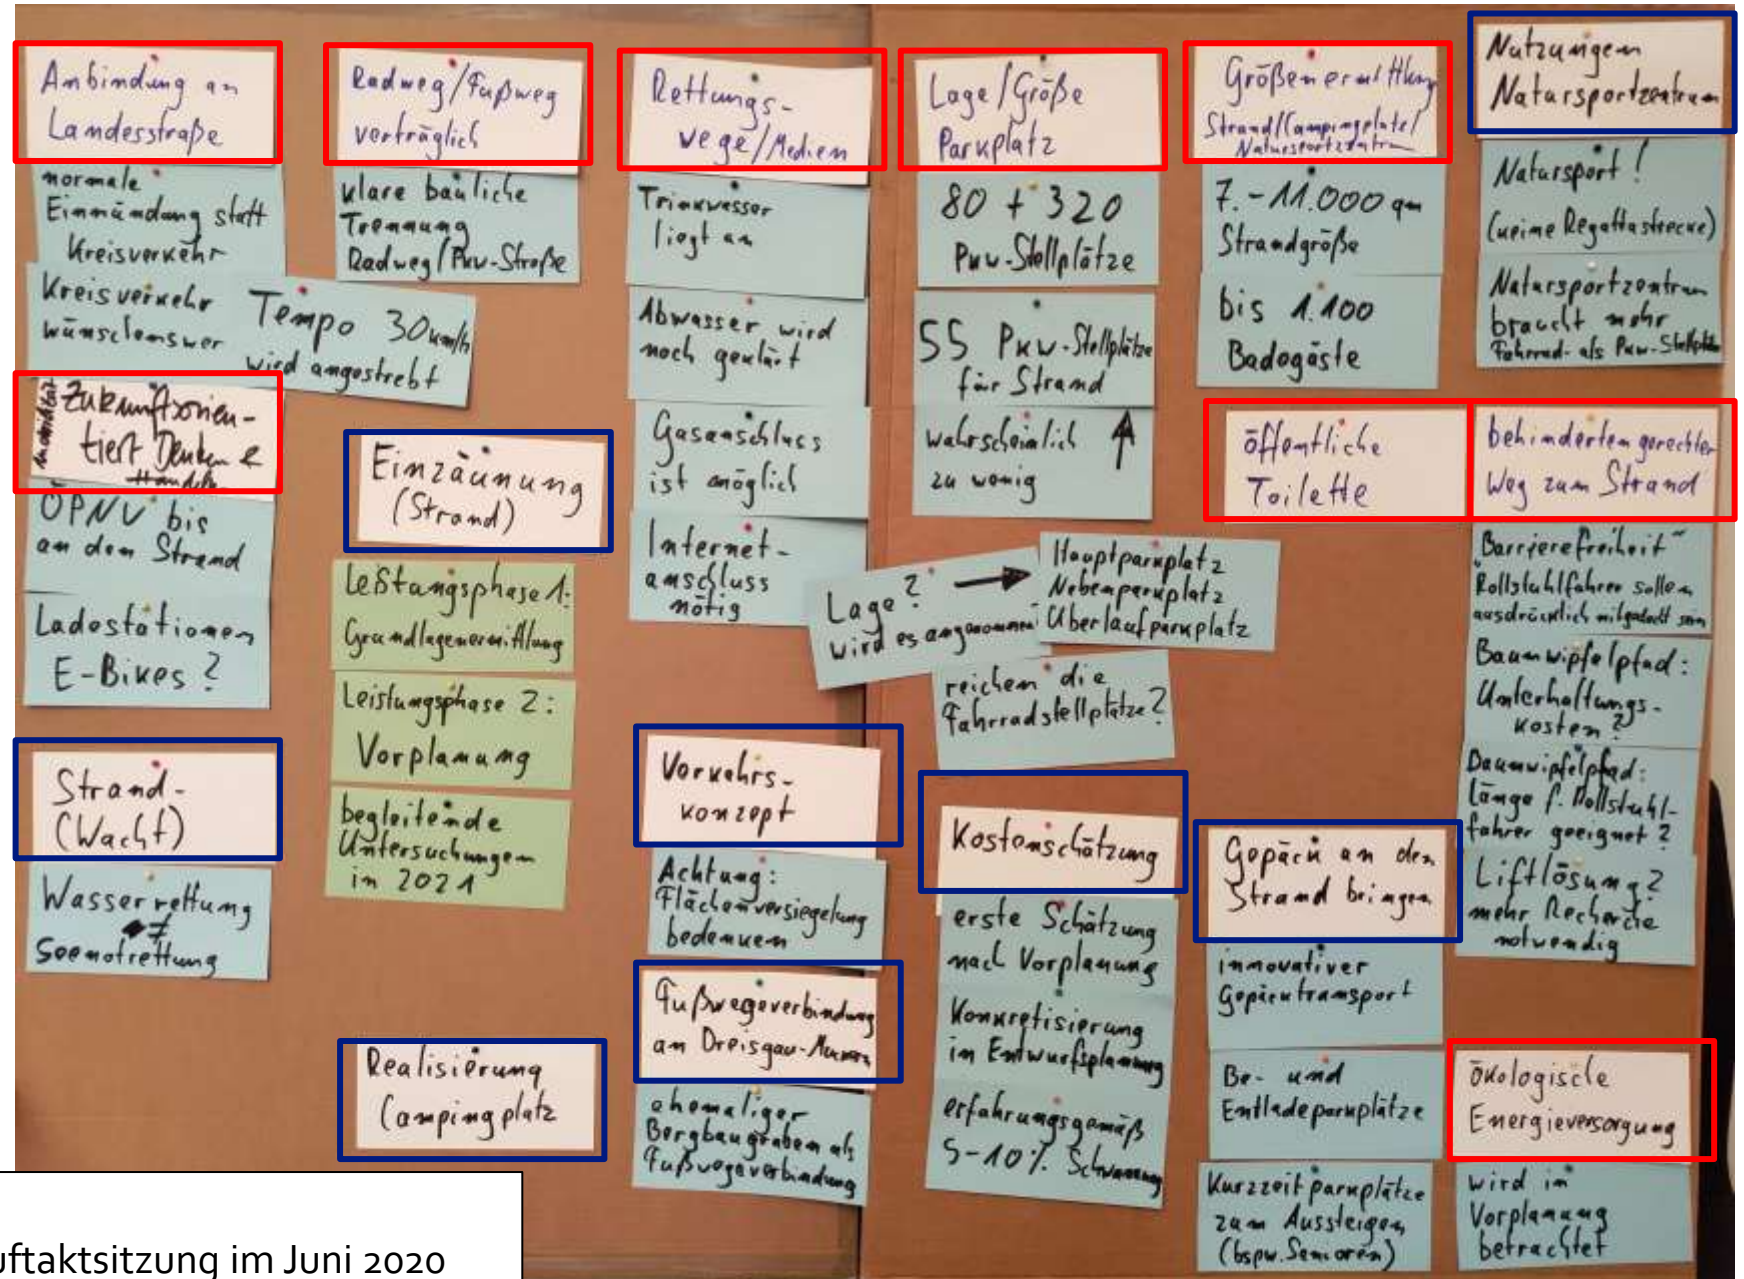 Anbindung an
Landesstraße
normale
Einmündung statt
Kreisverkehr
Kreisverkehr
wünschenswer
Tempo 30 km/h
wird angestrebt
Zukunftsorien-
tiert Denken &
Handeln
ÖPNV bis
an den Strand
Ladestationen
E-Bikes?
Strand-
(Wacht)
Wasserrettung
≠
Seenotrettung
Radweg/Fußweg
verträglich
klare bauliche
Trennung
Radweg/Pkw-Straße
Einzäunung
(Strand)
Leistungsphase 1:
Grundlagenermittlung
Leistungsphase 2:
Vorplanung
begleitende
Untersuchungen
in 2021
Realisierung
Campingplatz
Rettungs-
wege/Medien
Trinkwasser
liegt an
Abwasser wird
noch geklärt
Gasanschluss
ist möglich
Internet-
anschluss
nötig
Verkehrs-
konzept
Achtung:
Flächenversiegelung
bedenken
Fußwegeverbindung
an Dreisgau-
ehemaliger
Bergbaugraben als
Fußwegeverbindung
Lage/Größe
Parkplatz
80 + 320
Pkw-Stellplätze
55 Pkw-Stellplätze
für Strand
wahrscheinlich ↑
zu wenig
Lage? →
wird es angenommen
Hauptparkplatz
Nebenparkplatz
Überlaufparkplatz
reichen die
Fahrradstellplätze?
Kostenschätzung
erste Schätzung
nach Vorplanung
Konkretisierung
in Entwurfsplanung
erfahrungsgemäß
5-10% Schwankung
Größenermittlung
Strand/Campingplatz/
Natursportzentrum
7.-11.000 qm
Strandgröße
bis 1.100
Badegäste
öffentliche
Toilette
Gepäck an den
Strand bringen
innovativer
Gepäcktransport
Be- und
Entladeparkplätze
Kurzzeitparkplätze
zum Aussteigen
(bspw. Senioren)
Nutzungen
Natursportzentrum
Natursport!
(keine Regattastrecke)
Natursportzentrum
braucht mehr
Fahrrad- als Pkw-Stellplätze
behindertengerechter
Weg zum Strand
"Barrierefreiheit"
Rollstuhlfahrer sollen
ausdrücklich mitgedacht sein
Baumwipfelpfad:
Unterhaltungs-
kosten?
Baumwipfelpfad:
Länge f. Rollstuhl-
fahrer geeignet?
Liftlösung?
mehr Recherche
notwendig
ökologische
Energieversorgung
wird in
Vorplanung
betrachtet
uftaktsitzung im Juni 2020